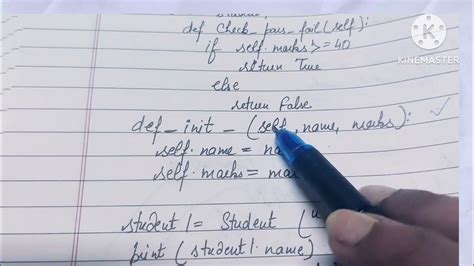 def check_pass_fail(self):
if self.marks >= 40
return True
else
return False
def_init_(self, name, marks):
self.name = na
self.marks = mar
student1 = Student (
print (student1.name)
KINEMASTER